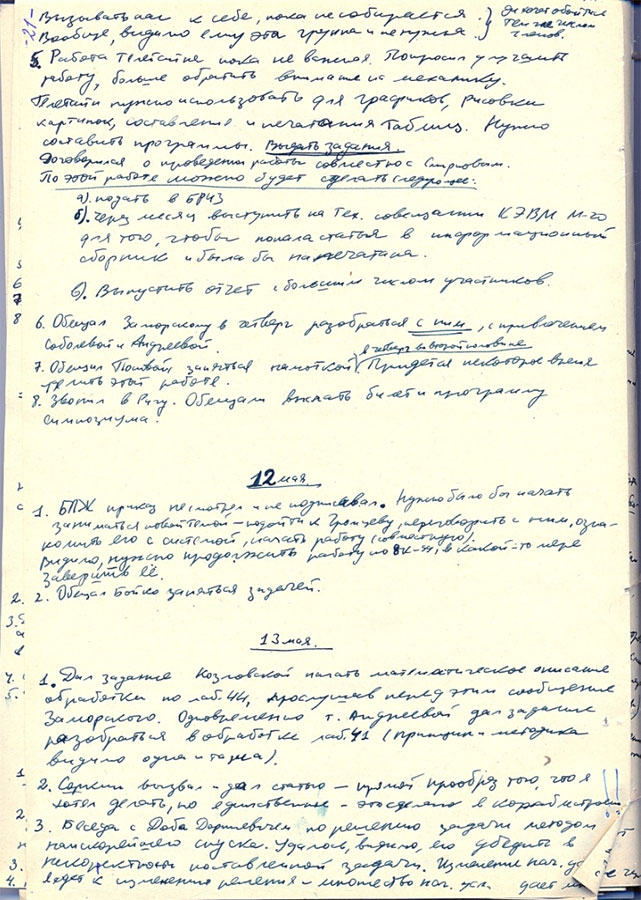 -21-
Вызывать нас к себе, пока не собирается.
Вообще, видимо ему эта группа и не нужна.
5. Работа Телетайпе пока не важная. Попросил улучшить
работу, больше обратить внимание на механику.
Телетайп нужно использовать для графиков, рисовки
картинок, составления и печатания таблиц. Нужно
составить программы. Выдать задания.
Договорился о проведении работы совместно с Смирновым.
По этой работе можно будет сделать следующее:
а). подать в БРИЗ
б). через месяц выступить на тех. совещании КЭВМ М-го
для того, чтобы попала статья в информационный
сборник и была бы напечатана.
в). Выпустить отчет с большим числом участников.
6. Обещал Заморскому в четверг разобраться с ним, с привлечением
Соболевой и Андреевой.
в четверг во второй половине
7. Обещал заняться Придется некоторое время
делить этой работе.
8. Звонил в Ригу. Обещали выслать билет и программу
симпозиума.
12 мая
1. БПЖ приказ не смотрел и не подписывал. Нужно было бы начать
заниматься новой темой – подойти к переговорить с ним, озна-
комить его с системой, начать работу (совместную).
Видимо, нужно продолжить работу по в какой-то мере
завершить её.
2. Обещал Бойко заняться задачей.
13 мая.
1. Дал задание Козловской начать математическое описание
обработки по лаб. 44, прослушав перед этим сообщение
Заморского. Одновременно т. Андреевой дал задание
разобраться в обработке лаб. 41 (принцип и методика
видимо одна и та же).
2. Соркин вызвал – дал статью – прямой прообраз того, что я
хотел делать, но единственное – это сделано в кораблестроен
3. Беседа с по решению задачи методом
наискорейшего спуска. Удалось, видимо, его убедить в
некорректности поставленной задачи. Изменение нач.
ведет к изменению решения – множество нач. усл. дает